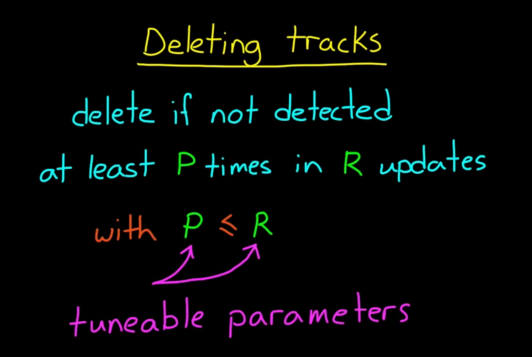 Deleting tracks
delete if not detected
at least P times in R updates
with P ≤ R
tuneable parameters